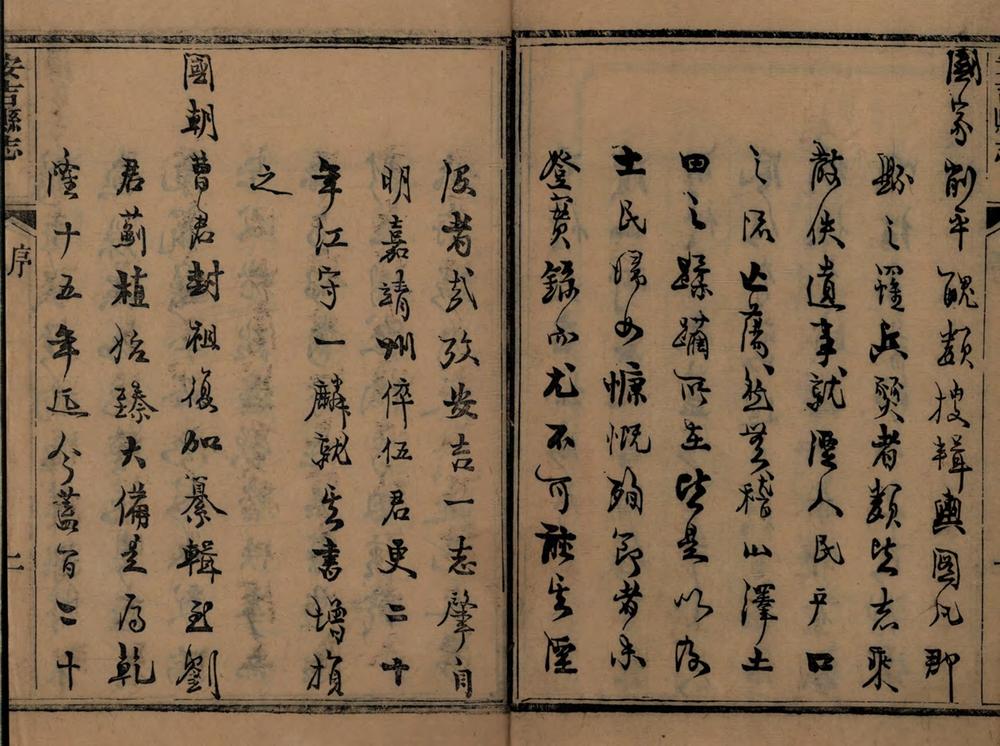 國家削平醜類搜輯輿圖凡郡
縣之罹兵燹者類皆志乘
散佚遺事就湮人民户口
之流亡蕩然無稽山澤土
田之蹂躪所在皆是以及
士民婦女慷慨殉節者未
登實錄而尤不可聽其湮
沒者哉攷安吉一志肇自
明嘉靖州倅伍君更二十
年江守一麟就其書增損
之
國朝曹君封祖復加纂輯至劉
君薊植始臻大備是為乾
隆十五年迄今蓋百二十
安吉縣志
序